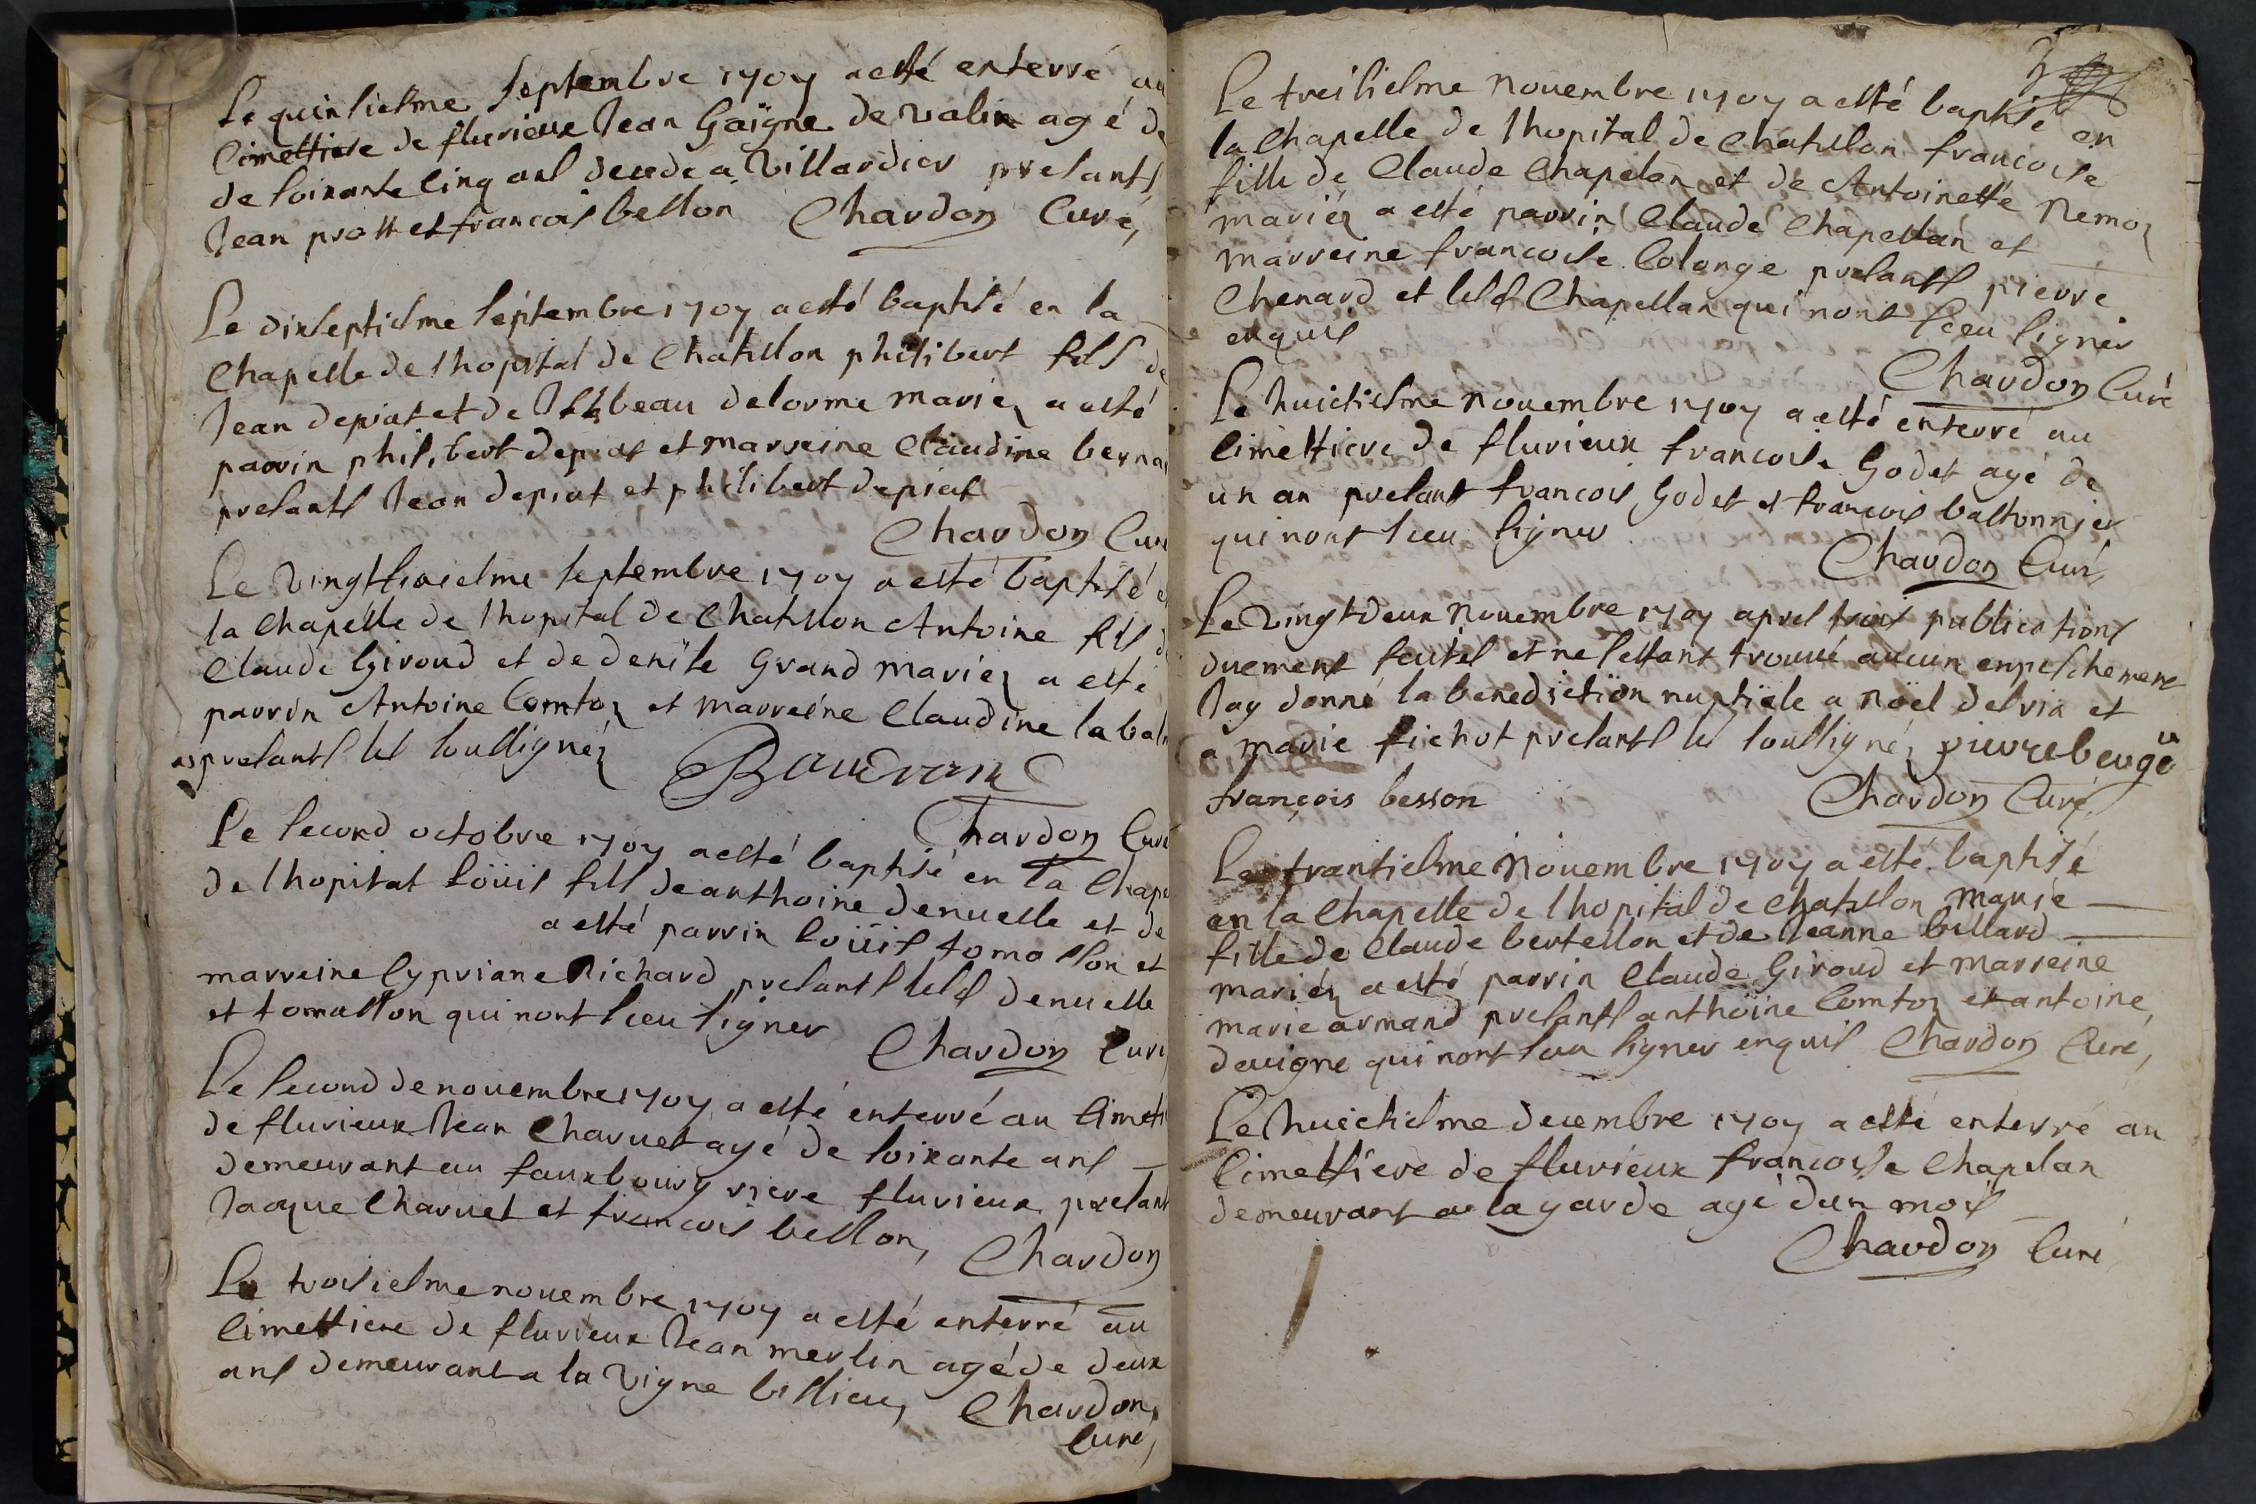 Le quinsiesme septembre 1707 a esté enterré au
cimettiere de flurieux Jean Gaigne de valin agé de
de soixante cinq ans decede a Villardier presants
Jean prost et francois bellon Chardon Curé,
Le dixseptiesme septembre 1707 a esté baptisé en la
Chapelle de lhopital de Chatillon philibert fils de
Jean depiat et de Isabeau delorme mariez a esté
parrin philibert depiat et marreine Claudine berna
presants Jean depiat et philibert depiat
Chardon Curé
Le vingtsixiesme septembre 1707 a esté baptisé e
la Chapelle de lhopital de Chatillon Antoine fils d
Claude Giroud et de denise Grand mariez a esté
parrin Antoine Comtoz et marreine Claudine la bal
presants les soussignéz
Baudrant
Chardon Curé
Le second octobre 1707 a esté baptisé en la Chape
de lhopital loüis fils de anthoine denuelle et de
a esté parrin loüis tomasson et
marreine Cypriane Richard presants lesd denuelle
et tomasson qui nont sceu signer Chardon Curé
Le second de nouembre 1707 a esté enterré au Cimeti
de flurieux Jean Charuet agé de soixante ans
demeurant au fauxbourg riere flurieux presant
Jacque Charuet et francois bellon, Chardon
Le troisiesme nouembre 1707 a esté enterré au
Cimettiere de flurieux Jean merlin agé de deux
ans demeurant a la Vigne Chardon,
Curé,
Le treisiesme nouembre 1707 a esté baptisé en
la Chapelle de lhopital de Chatillon francoise
fille de Claude Chapelan et de Antoinette Nemoz
mariéz a esté parrin Claude Chapellan et
marreine francoise Colonge presants pierre
Chenard et lesd Chapellan qui nont sceu signer
enquis
Chardon Curé
Le huictiesme nouembre 1707 a esté enterré au
cimettiere de flurieux francoise Godet agé de
un an presant francois Godet et francois bastonnier
qui nont sceu signer
Chardon Curé,
Le Vingtdeux nouembre 1707 apres trois publications
duement faites et ne sestant trouué aucun enpeschement
Jay donné la benediction nuptiale a noël delvia et
a marie fichot presants les soussignéz pierre beuge
françois besson Chardon Curé,
Le trantiesme Nouembre 1707 a esté baptisé
en la Chapelle de lhopital de chatillon marie
fille de Claude bertellon et de Jeanne billard
mariéz a esté parrin Claude Giroud et marreine
marie armand presants anthoine Comtoz et antoine
deuigne qui nont sceu signer enquis Chardon Curé,
Le huictiesme decembre 1707 a esté enterré au
Cimettiere de flurieux francoise Chapelan
demeurant a la garde agé dun mois
Chardon Curé